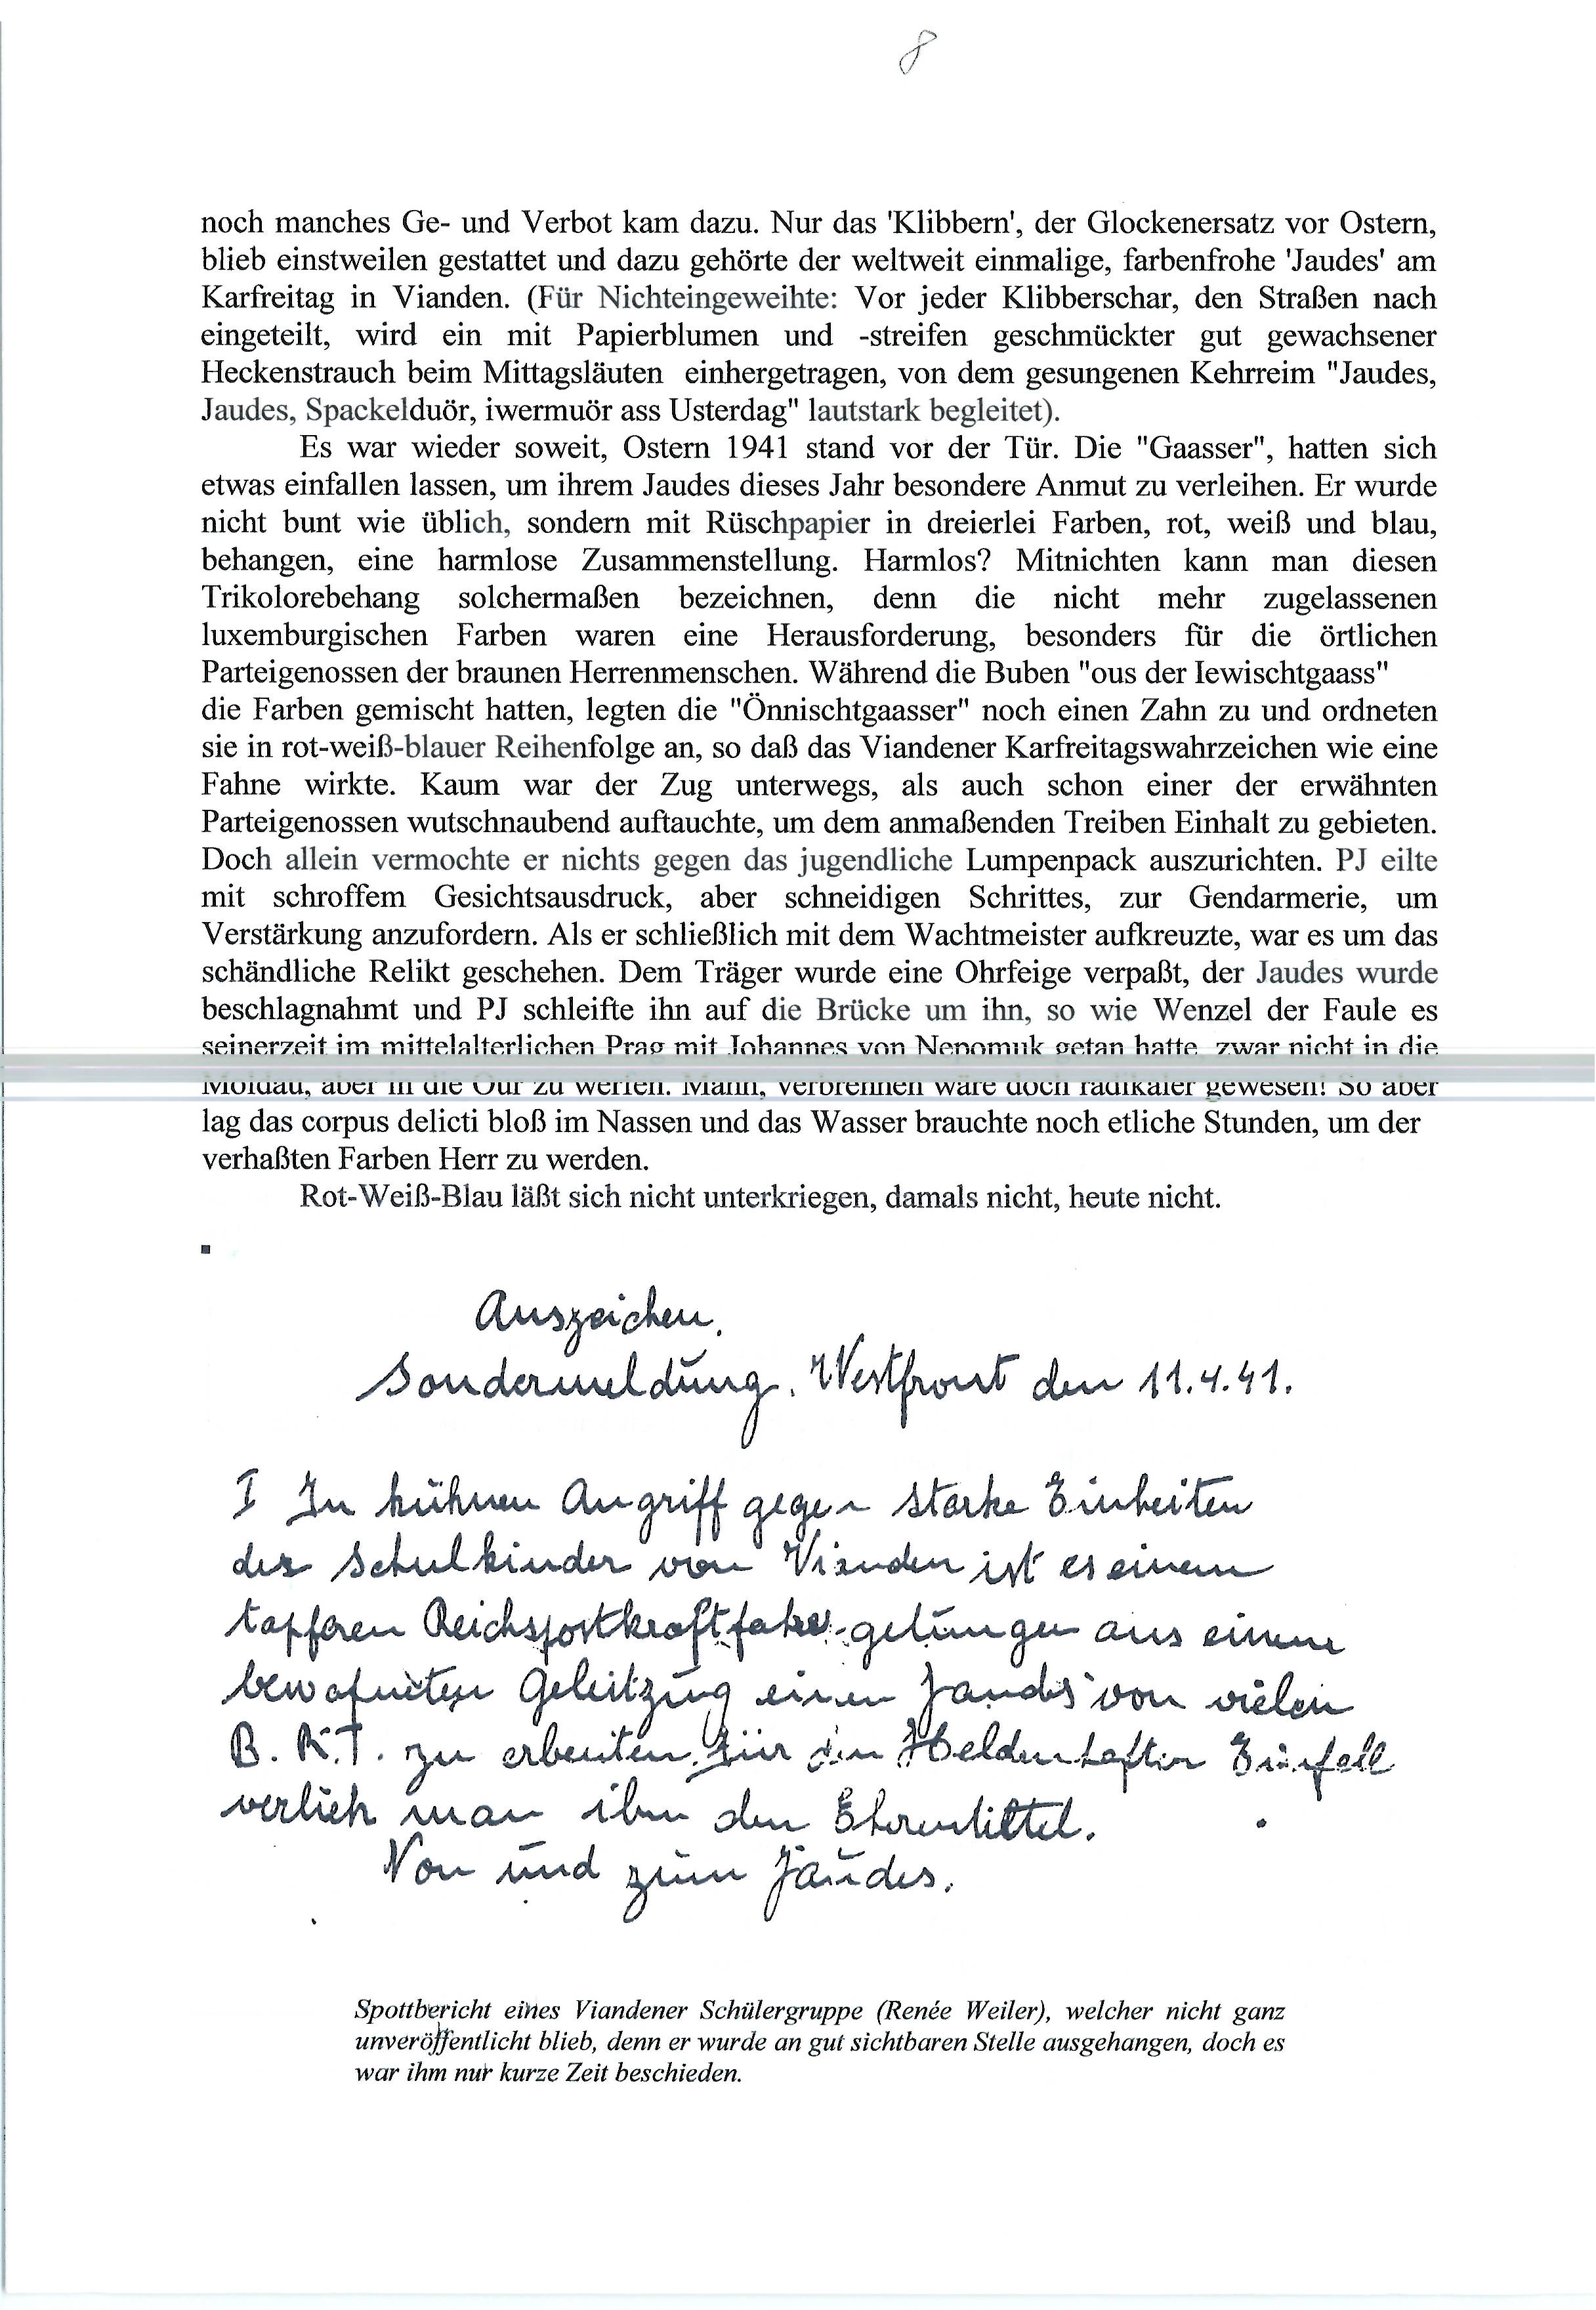 8
noch manches Ge- und Verbot kam dazu. Nur das 'Klibbern', der Glockenersatz vor Ostern,
blieb einstweilen gestattet und dazu gehörte der weltweit einmalige, farbenfrohe 'Jaudes' am
Karfreitag in Vianden. (Für Nichteingeweihte: Vor jeder Klibberschar, den Straßen nach
eingeteilt, wird ein mit Papierblumen und -streifen geschmückter gut gewachsener
Heckenstrauch beim Mittagsläuten einhergetragen, von dem gesungenen Kehrreim "Jaudes,
Jaudes, Spackelduör, iwermuör ass Usterdag" lautstark begleitet).
Es war wieder soweit, Ostern 1941 stand vor der Tür. Die "Gaasser", hatten sich
etwas einfallen lassen, um ihrem Jaudes dieses Jahr besondere Anmut zu verleihen. Er wurde
nicht bunt wie üblich, sondern mit Rüschpapier in dreierlei Farben, rot, weiß und blau,
behangen, eine harmlose Zusammenstellung. Harmlos? Mitnichten kann man diesen
Trikolorebehang solchermaßen bezeichnen, denn die nicht mehr zugelassenen
luxemburgischen Farben waren eine Herausforderung, besonders für die örtlichen
Parteigenossen der braunen Herrenmenschen. Während die Buben "ous der Iewischtgaass"
die Farben gemischt hatten, legten die "Önnischtgaasser" noch einen Zahn zu und ordneten
sie in rot-weiß-blauer Reihenfolge an, so daß das Viandener Karfreitagswahrzeichen wie eine
Fahne wirkte. Kaum war der Zug unterwegs, als auch schon einer der erwähnten
Parteigenossen wutschnaubend auftauchte, um dem anmaßenden Treiben Einhalt zu gebieten.
Doch allein vermochte er nichts gegen das jugendliche Lumpenpack auszurichten. PJ eilte
mit schroffem Gesichtsausdruck, aber schneidigen Schrittes, zur Gendarmerie, um
Verstärkung anzufordern. Als er schließlich mit dem Wachtmeister aufkreuzte, war es um das
schändliche Relikt geschehen. Dem Träger wurde eine Ohrfeige verpaßt, der Jaudes wurde
beschlagnahmt und PJ schleifte ihn auf die Brücke um ihn, so wie Wenzel der Faule es
seinerzeit im mittelalterlichen Prag mit Johannes von Nepomuk getan hatte, zwar nicht in die
Moldau, aber in die Our zu werfen. Mann, verbrennen wäre doch radikaler gewesen! So aber
lag das corpus delicti bloß im Nassen und das Wasser brauchte noch etliche Stunden, um der
verhaßten Farben Herr zu werden.
Rot-Weiß-Blau läßt sich nicht unterkriegen, damals nicht, heute nicht.
Auszeichen.
Sondermeldung. Westfront den 11.4.41.
I In kühnen Angriff gegen starke Einheiten
der Schulkinder von Vianden ist es einem
tapferen gelungen aus einem
bewafneten Geleitzug einen Jaudes von vielen
B.R.T. zu erbeuten. Für den Heldenhaften
verlieh man ihm den Ehrentittel.
Von und zum Jaudes.
Spottbericht eines Viandener Schülergruppe (Renée Weiler), welcher nicht ganz
unveröffentlicht blieb, denn er wurde an gut sichtbaren Stelle ausgehangen, doch es
war ihm nur kurze Zeit beschieden.